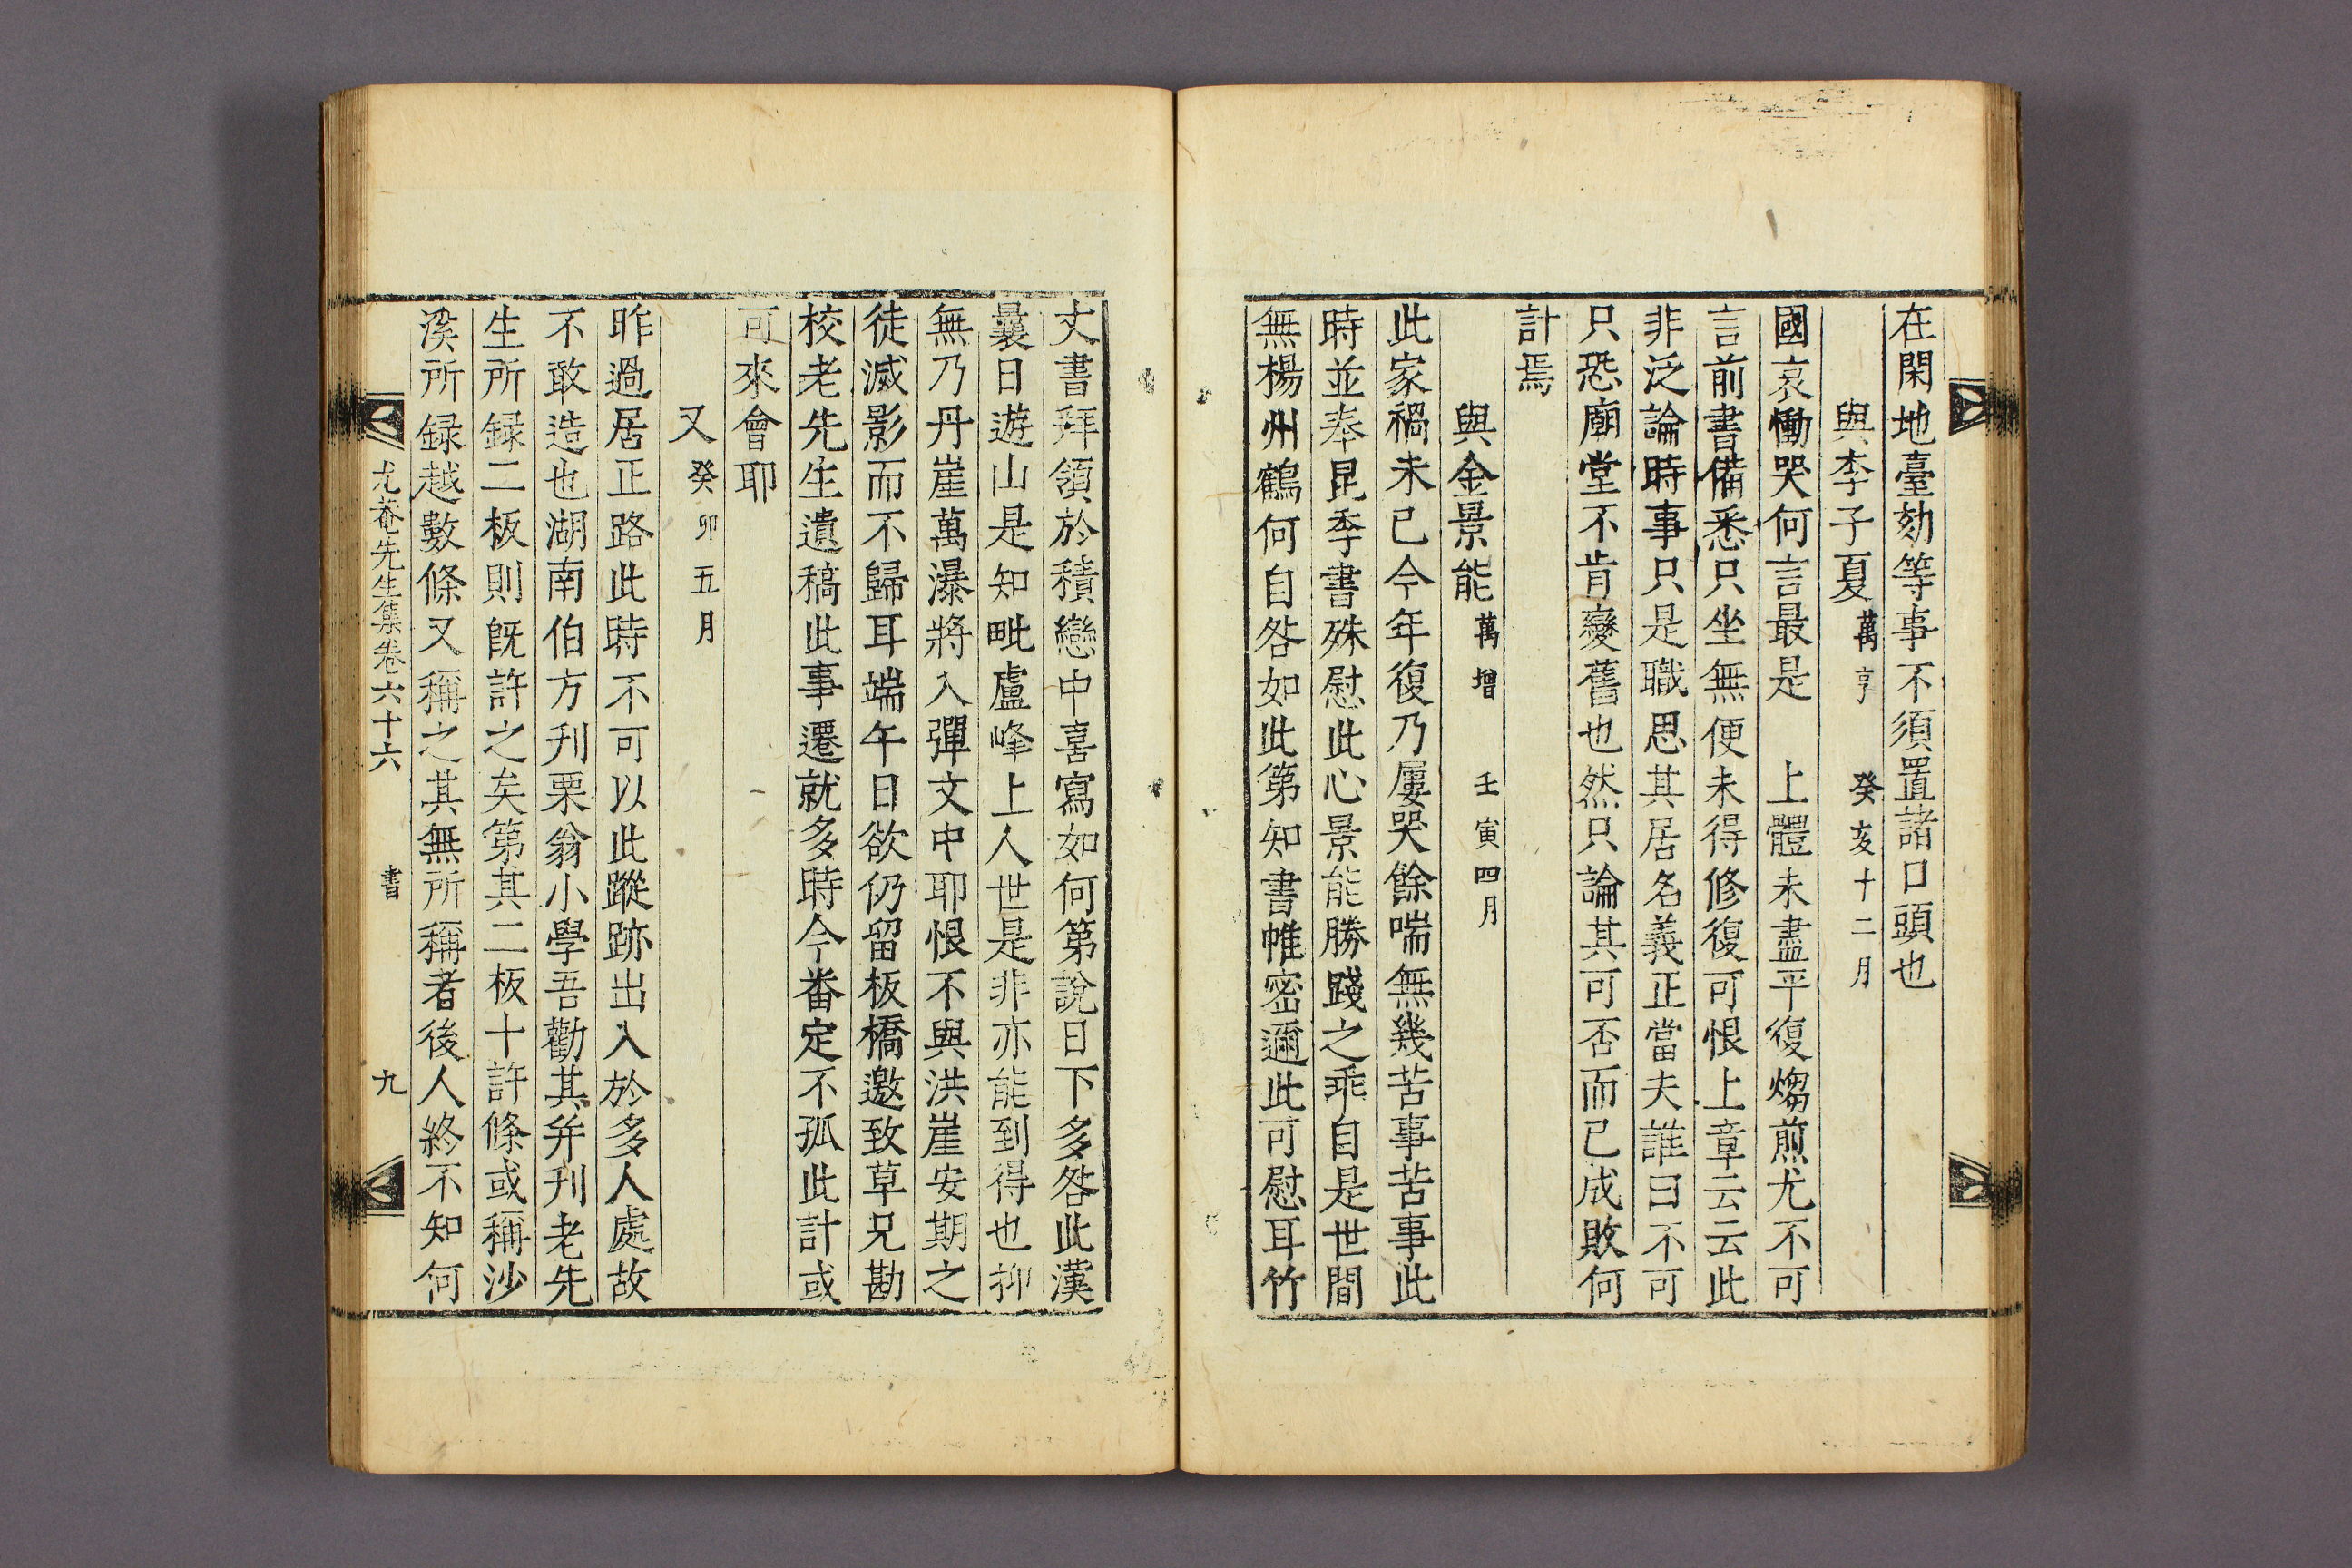 在閑地臺劾等事不須置諸口頭也
與李子夏萬亨 癸亥十二月
國哀慟哭何言最是 上體未盡平復煼煎尤不可
言前書備悉只坐無便未得修復可恨上章云云此
非泛論時事只是職思其居名義正當夫誰曰不可
只恐廟堂不肯變舊也然只論其可否而已成敗何
計焉
與金景能萬增 壬寅四月
此家禍未已今年復乃屢哭餘喘無幾苦事苦事此
時並奉昆季書殊慰此心景能勝踐之乖自是世間
無楊州鶴何自咎如此第知書帷密邇此可慰耳竹
丈書拜領於積戀中喜寫如何第說日下多咎此漢
曩日遊山是知毗盧峰上人世是非亦能到得也抑
無乃丹崖萬瀑將入彈文中耶恨不與洪崖安期之
徒滅影而不歸耳端午日欲仍留板橋邀致草兄勘
校老先生遺稿此事遷就多時今番定不孤此計或
可來會耶
又癸卯五月
昨過居正路此時不可以此蹤跡出入於多人處故
不敢造也湖南伯方刋栗翁小學吾勸其弁刋老先
生所録二板則旣許之矣第其二板十許條或稱沙
溪所録越數條又稱之其無所稱者後人終不知何
尤菴先生集卷六十六 書 九